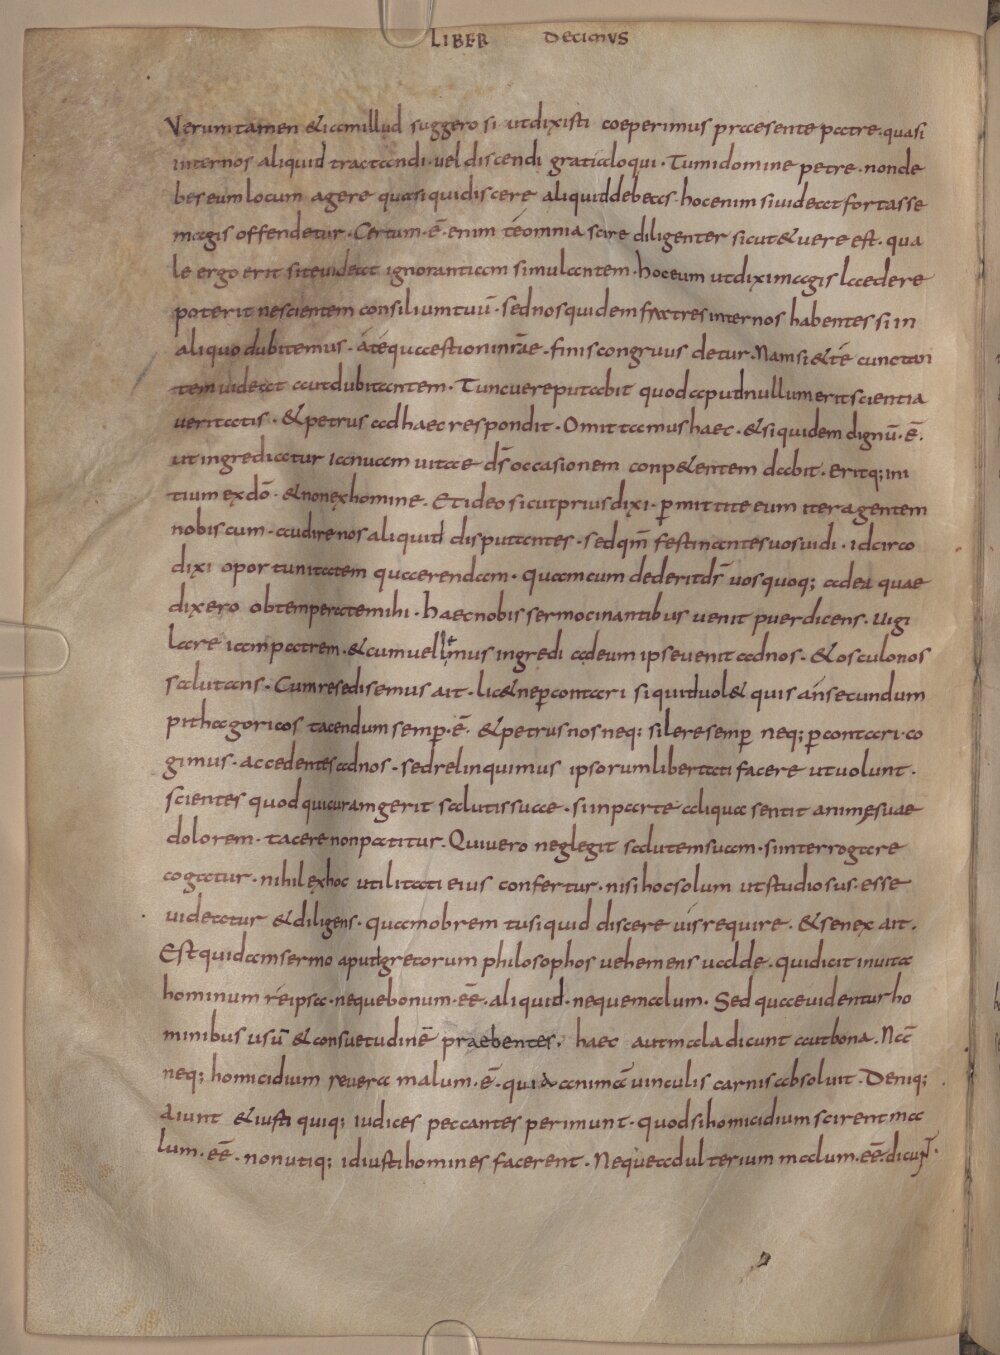 LIBER DECIMVS
Verumtamen & iam illud suggero si ut dixisti coeperimus praesente patre. quasi
inter nos aliquid tractandi. uel discendi gratia loqui. Tu mi domine petre. non de
bes eum locum agere quasi qui discere aliquid debeas. hoc enim si uideat fortasse
magis offendetur. Certum. ē. enim té omnia scire diligenter sicut & uere est. qua
le ergo erit si te uideat ignorantiam simulantem. hoc eum ut dixi magis laedere
poterit nescientem consilium tuū. sed nos quidem fratres inter nos habentes si in
aliquo dubitemus. á té quaestioni nrāe. finis congruus detur. Nam si & té cunctan
tem uideat aut dubitantem. Tunc uere putabit quod apud nullum erit scientia
ueritatis. & petrus ad haec respondit. Omittamus haec. & si quidem dignū. ē.
ut ingrediatur ianuam uitae ds̄ occasionem conp&entem dabit. eritq; ini
tium ex dō. & non ex homine. Et ideo sicut prius dixi. ꝑmittite eum iter agentem
nobiscum. audire nos aliquid disputantes. sed qm̄ festinantes uos uidi. idcirco
dixi oportunitatem quaerendam. Quam cum dederit ds̄ uos quoq; ad ea quae
dixero obtemperate mihi. haec nobis sermocinantibus uenit puer dicens. Uigi
lare iam patrem. & cum uellemus ingredi ad eum ipse uenit ad nos. & osculo nos
salutans. Cum resedisemus ait. lic& ne ꝑcontari si quid uol& quis án secundum
pithagoricos tacendum semꝑ. ē. & petrus nos neq; silere semꝑ neq; ꝑcontari co
gimus. accedentes ad nos. sed relinquimus ipsorum libertati facere ut uolunt.
scientes quod qui curam gerit salutis suae. si in parte aliqua sentit animę suae
dolorem. tacere non patitur. Qui uero neglegit salutem suam. si interrogare
cogatur. nihil ex hoc utilitati eius confertur. nisi hoc solum ut studiosus esse
uideatur & diligens. quamobrem tu si quid discere uis require. & senex ait.
Est quidam sermo apud grecorum philosophos uehemens ualde. qui dicit in uita
hominum ré ipsa. neque bonum. ēē. aliquid. neque malum. Sed quae uidentur ho
minibus usū & consuetudinē praebentes. haec aut mala dicunt aut bona. Nā
neq; homicidium reuera malum. ē. quia animā uinculis carnis absoluit. Deniq;
aiunt & iusti quiq; iudices peccantes perimunt. quod si homicidium scirent ma
lum. ēē. non utiq; id iusti homines facerent. Neque adulterium malum. ēē. dicunt.